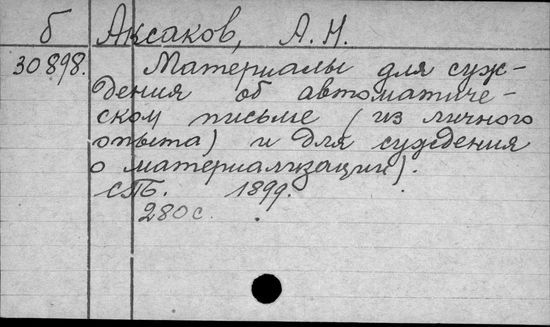 б Аксаков, А. Н.
30898. Материалы для суж-
дения об автоматиче-
ском письме (из личного
опыта) и для суждения
о материализации).
СПБ. 1899.
280 с.